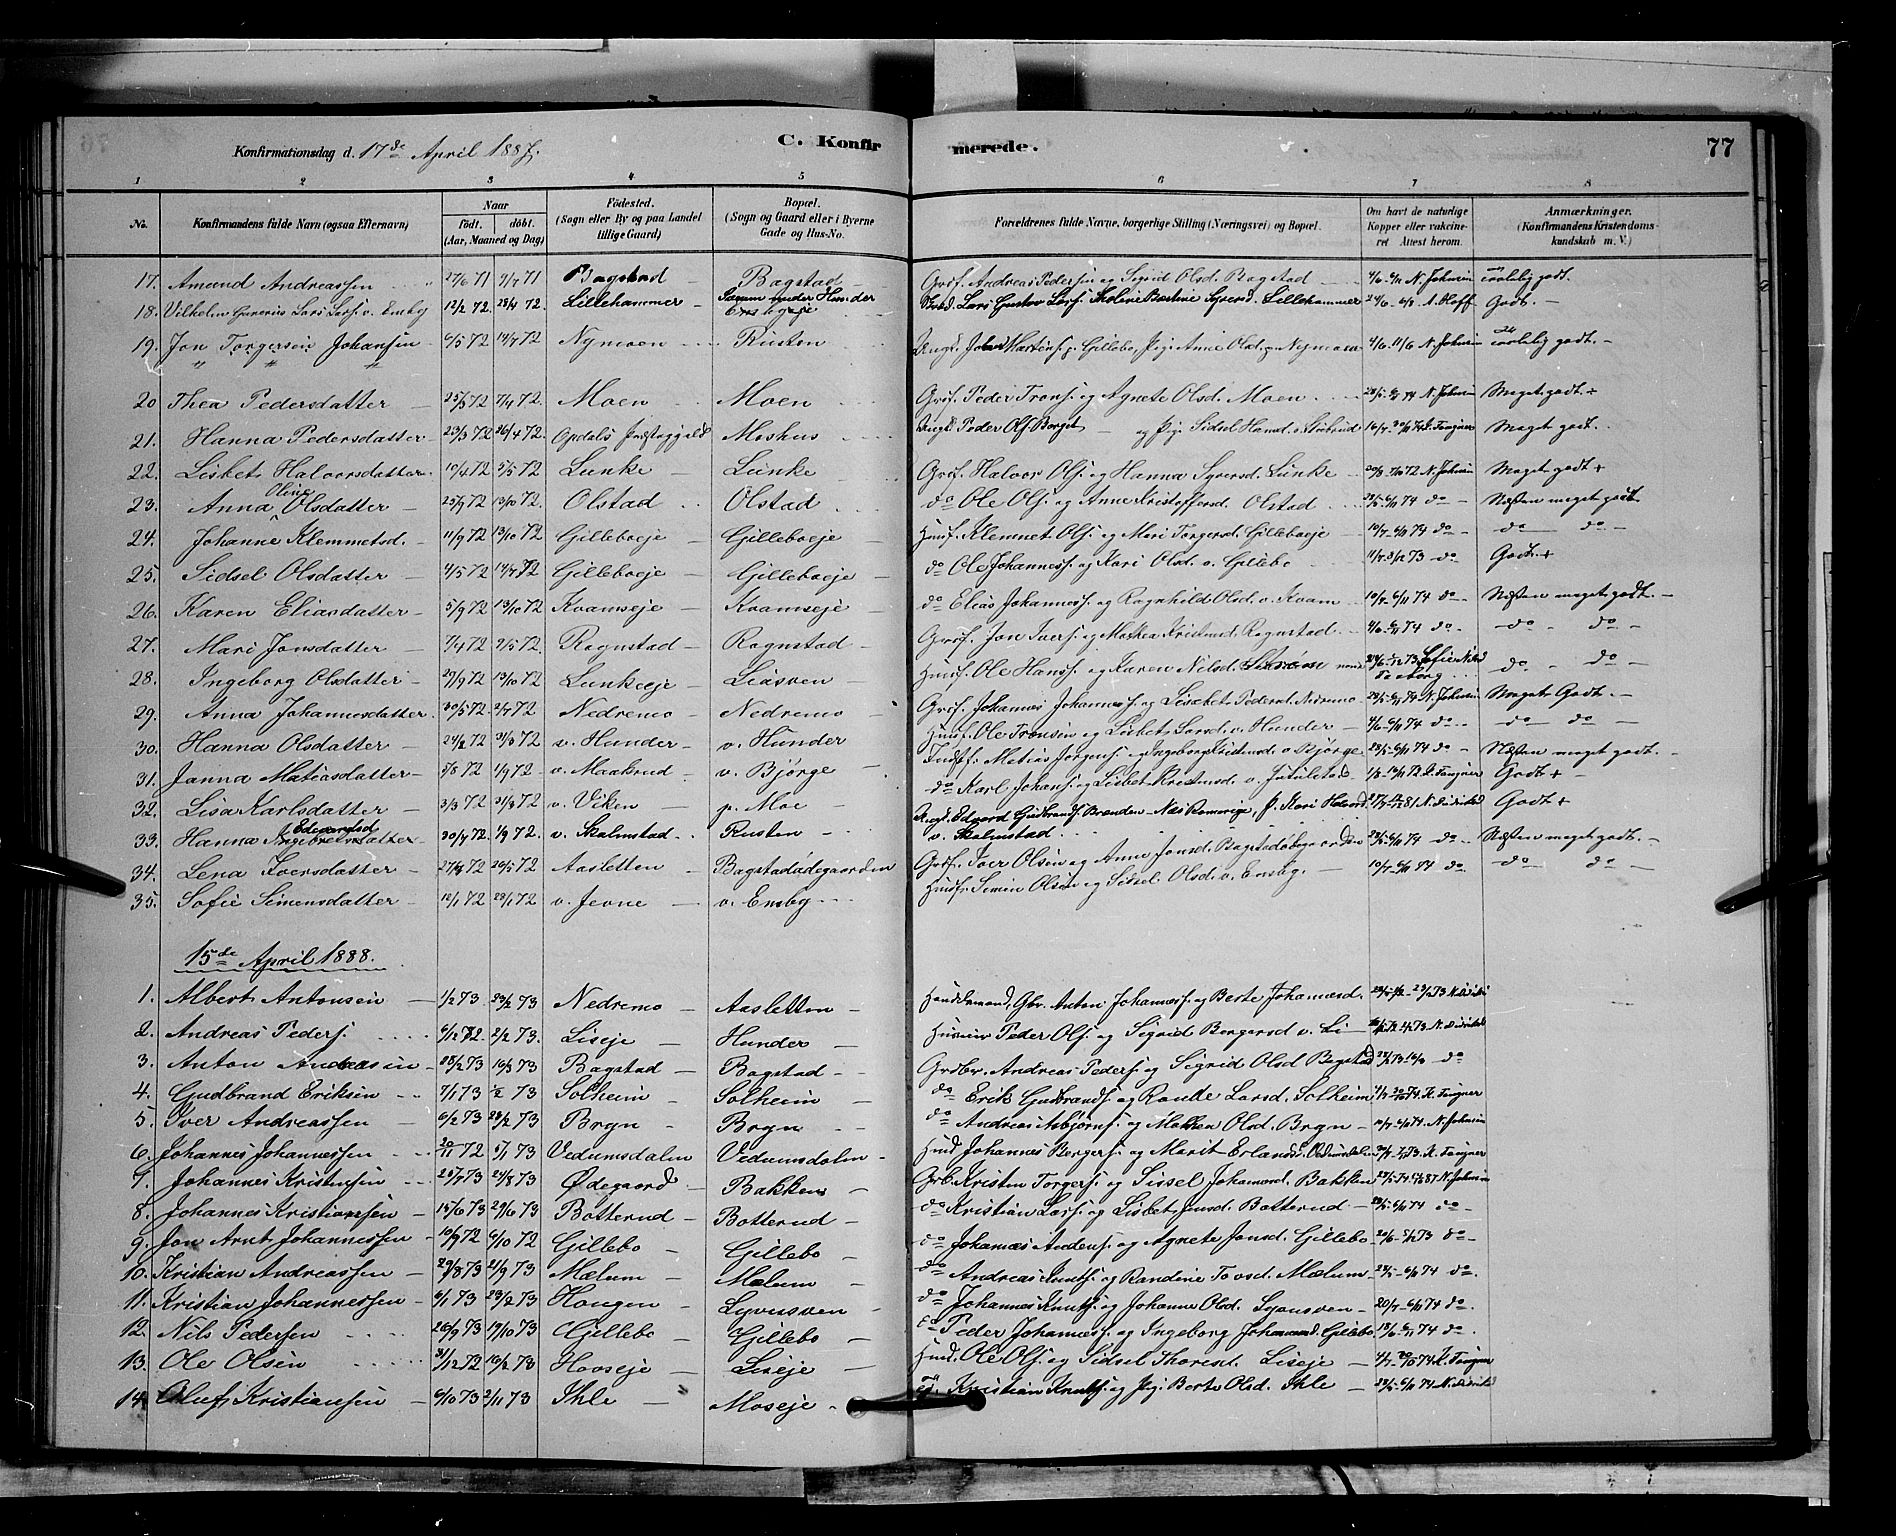 Konfirmationsdag d. 17de April 1887. C. Konfirmerede. 77
1 2 3 4 5 6 7 8
No. Konfirmandens fulde Navn (ogsaa Efternavn) Naar født. døbt. (Aar, Maaned og Dag) Fødested. (Sogn eller By og paa Landet tillige Gaard) Bopæl. (Sogn og Gaard eller i Byerne Gade og Hus-No. Forældrenes fulde Navne, borgerlige Stilling (Næringsvei) og Bopæl. Om havt de naturlige Kopper eller vaccineret Attest herom. Anmærkninger. (Konfirmandens Kristendomskundskab m. V.)
17. Amund Andreassen 27/6 71 9/7 71 Bagstad Bagstad Grdf. Andreas Peders. og Sigrid Olsd. Bagstad 4/6 6/11 N. Johnsen
18. Vilhelm Lars Larss. v. Ensby 12/2 72 28/4 72 Lillehammer under Hunder Ensbyeje Lars Gustav Larss. Lillehammer Godt. –
19. Jon Torgersen Johansen 6/5 72 14/7 72 Nymoen Rusten Ungk. Johan Martins. p. Gillebo, Pige Anne Olsd. p. Nymoen 4/6 11/6 N. Johnsen godt. –
20 Thea Pedersdatter – 25/3 72 7/4 72. Moen – Moen Grdf. Peder Trons. og Agnete Olsd. Moen 23/5 6/11 74 N. Johnsen Meget godt.
21. Hanna Pedersdatter – 23/3 72 26/4 72. Opdals Præstegjeld Moshus Ungk. Peder Ols. Borget – og Pige Sidsel Hansd. Meget godt.
22. Lisbet Halvorsdatter 10/4 72 5/5 72 Lunke – Lunke – Grdf. Halvor Ols. og Hanna Syversd. Lunke 72 N. Johnsen Meget godt +
23. Anna Oline Olsdatter – 25/9 72 13/10 72 Olstad Olstad do Ole Ols. og Anne Kristoffersd. Olstad 23/5 6/11 74 do – Næsten meget godt
24. Johanne Klemmetsd. – 11/9 72 13/10 72 Gilleboeje – Gilleboeje – Husf. Klemmet Ols. og Mari Torgersd. Gilleboeje – 10/7 6/11 74 do – do – do –
25. Sidsel Olsdatter – 4/5 72 14/7 72 Gilleboeje – Gilleboeje – do Ole Johanness. og Kari Olsd. v. Gillebo 73 do Godt +
26. Karen Eliasdatter – 5/9 72 13/10 72 Kvamseje – Kvamseje – do Elias Johanness. og Ragnhild Olsd. v. Kvam – 10/7 6/11 74 do – Næsten meget godt. –
27. Mari Jonsdatter – 7/4 72 9/5 72 Rognstad – Rognstad – Grdf. Jon Ivers. og Mathea Kristensd. Rognstad. – 4/6 6/11 74 do – do – do –
28. Ingeborg Olsdatter – 29/9 72 13/10 72 Lunkeeje – Liasven – Husf. Ole Hanss. og Karen Nilsd. 73 do – do –
29. Anna Johannesdatter 30/5 72 2/7 72 Nedremo – Nedremo – Grdf. Johannes Johanness. og Lisabet Pedersd. Nedremo – 23/5 6/11 74 N. Johnsen Meget Godt. –
30. Hanna Olsdatter – 24/2 72 31/3 72 v. Hunder – v. Hunder Husf. Ole Tronsen og Lisbet Larsd. v. Hunder – 4/6 6/11 74 do – do do –
31. Janna Matiasdatter – 5/8 72 1/9 72 v. Maabrud – v. Bjørge – Indf. Matias Jørgens. og Ingeborg Kristensd. v. Bjørge 23/5 6/11 74 do – Næsten meget godt. –
32. Lisa Karlsdatter – 3/3 72 31/3 72 v. Viken – p. Moe – do Karl Johans. og Lisbet Kristensd. v. 72 K. Fougner Godt + –
33. Hanna Edevardsd Ingebretsdatter 30/7 72. 1/9 72. v. Skalmstad Rusten Ungk. Edvard Gudbrands. Brænden Næs Romerige, p. Kari Halvorsd. v. Skalmstad 81. N. Didriksd Godt +
34. Lena Iversdatter – 27/3 72 20/5 72 Aasletten – Bagstadødegaarden Grdf. Iver Olsen og Anne Jonsd. Bagstadødegaarden 23/5 6/11 74 do – Næsten meget godt. –
35. Sofie Simensdatter – 12/1 72 28/1 72 v. Jevne – v. Ensby Husf. Simen Olsen og Sidsel Olsd. v. Ensby. – 10/7 6/11 74 do do – do –
15de April 1888.
1. Albert Antonsen – 1/2 73 23/2 73 Nedremo – Aasletten – Handelsmand, Gbr. Anton Johanness. og Berte Johannesd. 73
2. Andreas Peders. 6/12 72. 2/2 73. Liseje – Hunder – Husmd. Peder Ols. og Sigrid Borgersd. v. Li – 73
3. Anton Andreasen – 25/2 73 10/3 73 Bagstad – Bagstad – Grdbr. Andreas Peders. og Sigrid Olsd Bagstad do
4. Gudbrand Eriksen 7/1 73 1/2 73 Solheim – Solheim – do Erik Gudbrands. og Ronde Larsd. Solheim 74. K. Fougner
5. Iver Andreassen 6/2 73 28/2 73 Bryn – Bryn – do Andreas Asbjørns. og Mathea Olsd. Bryn – 10/7 6/11 74. N. Johnsen
6. Johannes Johannessen 20/11 72 5/1 73 Vedumsdalen Vedumsdalen – Husmd Johannes Borgers. og Marit Erlandsd. Vedumsdalen 73. K. Fougner
7. Johannes Kristensen 25/7 73 24/8 73 Ødegaard – Bakken – Grb. Kristen Torgers. og Sissel Johannesd. Bakken N. Johnsen
8. Johannes Kristianssen – 15/6 73 29/6 73 Botterud – Botterud – do Kristian Lars. og Lisbet Jensd. Botterud – 23/5 6/11 74 do –
9. Jon Arnt Johannessen – 10/9 72 6/10 72 Gillebo – Gillebo – do Johannes Anders. og Agnete Jonsd. Gillebo 73 do –
10. Kristian Andreassen – 29/8 73 21/9 73 Mælum – Mælum – do Andreas Knuts. og Randine Tovsd. Mælum – 23/5 6/11 74 do.
11. Kristian Johannessen – 6/1 73 23/2 73 Haugen – Lyvusven – do Johannes Knuts. og Johanne Olsd. – 20/7 6/11 74 do.
12. Nils Pedersen 26/9 73 19/10 73 Gillebo – Gillebo – do Peder Johanness. og Ingeborg Johannesd. Gillebo. 13/6 6/11 74 do –
13. Ole Olsen 31/12 72 10/2 73 Hovseje – Liseje – Husmd. Ole Ols. og Sidsel Thoresd. Liseje – 74 K. Fougner
14. Oluf Kristiansen – 6/10 73 2/11 73 Ihle – Moseje – Kristian Knuts. og Pige Berte Olsd. Ihle – 23/5 6/11 74 N. Didriksd